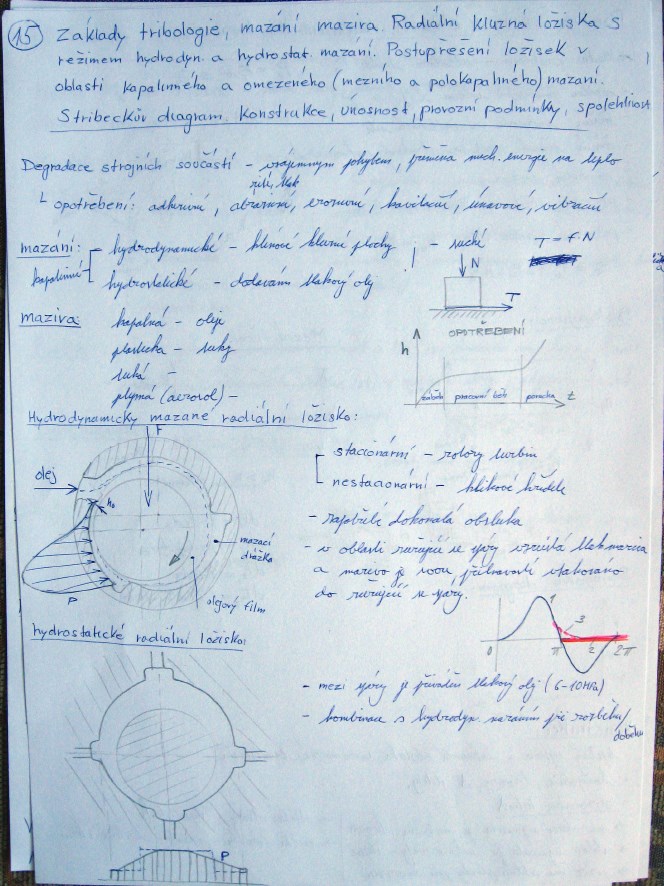 15 Základy tribologie, mazání maziva. Radiální kluzná ložiska s
režimem hydrodyn. a hydrostat. mazání. Postup řešení ložisek v
oblasti kapalinného a omezeného (mezního a polokapalinného) mazání.
Stribeckův diagram. Konstrukce, únosnost, provozní podmínky, spolehlivost
Degradace strojních součástí - vzájemným pohybem, přeměna mech. energie na teplo
síly, tlak
opotřebení: adhezivní, abrazivní, erozivní, kavitační, únavové, vibrační
mazání: hydrodynamické - klínové kluzné plochy - suché T = f·N
kapalinné
hydrostatické - dodáváním tlakový olej
N
T
maziva: kapalná - oleje
plastická - tuky
tuhá -
plynná (aerosol) -
OPOTŘEBENÍ
h
záběh pracovní běh porucha t
Hydrodynamicky mazané radiální ložisko:
F
olej
h₀
mazací
drážka
olejový film
P
stacionární - rotory turbin
nestacionární - klikové hřídele
- zapotřebí dokonalá obsluha
- v oblasti zužující se spáry vzniká tlak maziva
a mazivo je svou přilnavostí vtahováno
do zužující se spáry.
1
3
0 π 2 2π
hydrostatické radiální ložisko:
- mezi spáry je přiváděn tlakový olej (6-10MPa)
- kombinace s hydrodyn. mazáním při rozběhu/
doběhu
P